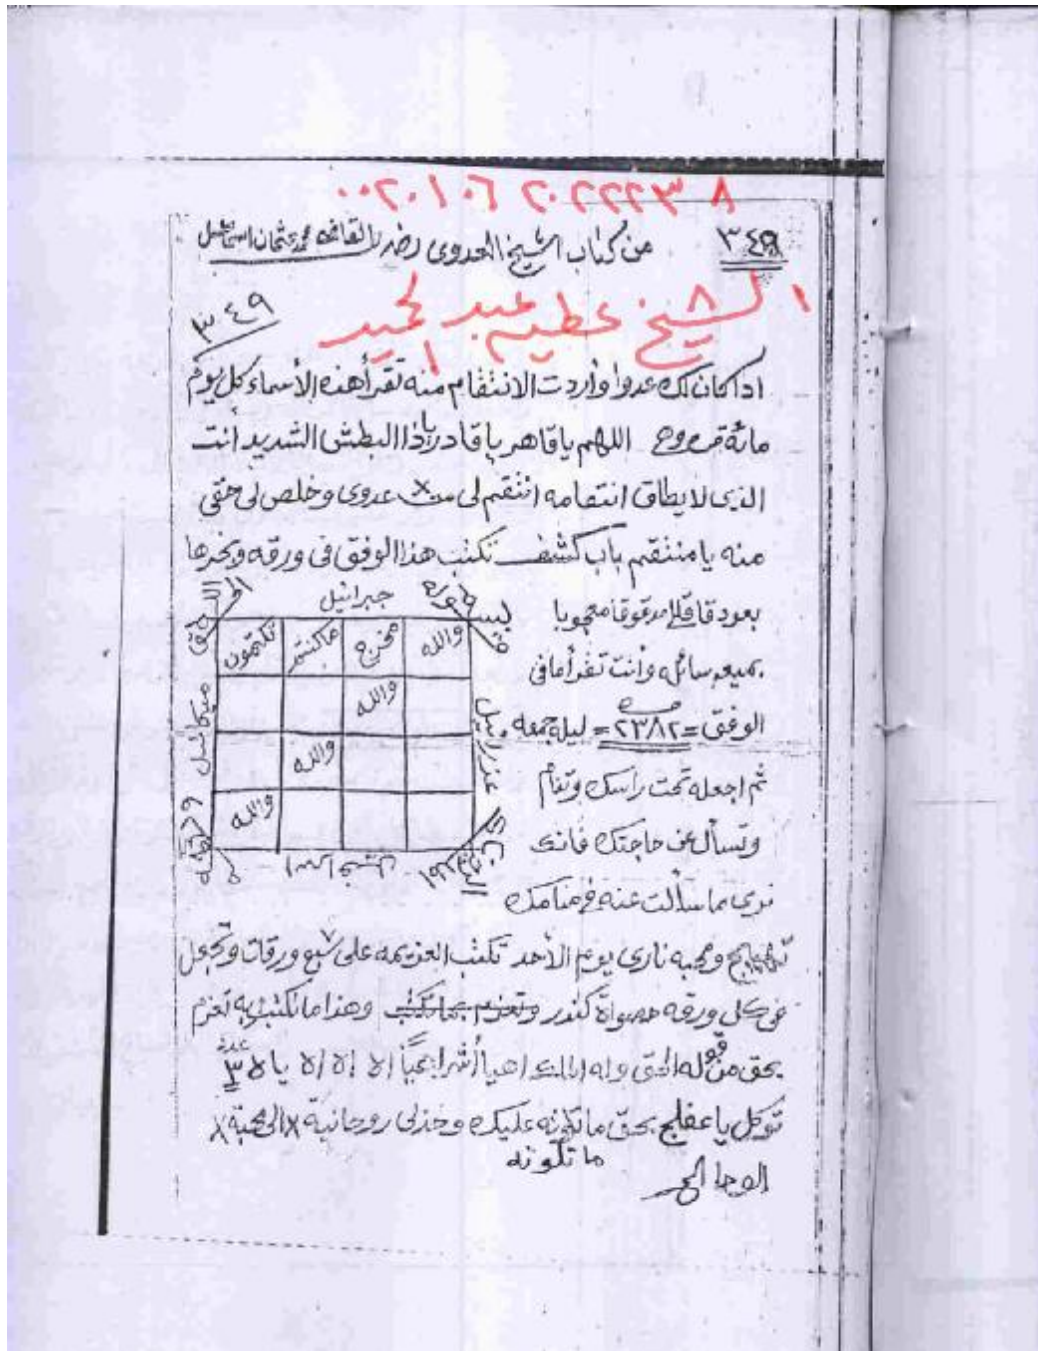 ٠٠٢٠١٠٦٢٠٢٢٢٣٨
٣٤٩ من كتاب الشيخ العدوى محمد عثمان اسماعيل
الشيخ عطيه عبد الحميد
٣٤٩
اذا كان لك عدوا وأردت الانتقام منه تقرأ هذه الأسماء كل يوم
مائة مره وهى اللهم يا قاهر يا قادر يا ذا البطش الشديد أنت
الذى لا يطاق انتقامه انتقم لى من عدوى وخلص لى حقى
منه يا منتقم باب كشف تكتب هذا الوفق فى ورقه وبخرها
بعود قاقلا مدقوقا معجوبا
بميعه سائله وأنت تقرأ ما فى
الوفق = ٢٣٨٢ مره = ليلة جمعه
ثم اجعله تحت راسك وتنام
وتسأل عن حاجتك فانك
ترى ما سألت عنه فى منامك
جبرائيل
والله مخرج ماكنتم تكتمون
والله
والله
والله
ميكائيل
عزرائيل
تهييج ومحبه نارى يوم الأحد تكتب العزيمه على سبع ورقات وتجعل
فى كل ورقه حصوة كندر وتعزم بما تكتب وهذا ما تكتب وبه تعزم
بحق من قوله الحق وله الملك اهيا أشراهيا اه اه اه ياه عدد ٣
توكل يا عفلج بحق ما تلوته عليك وخذلى روحانية x الى محبة x
ما تلوته
الوحا